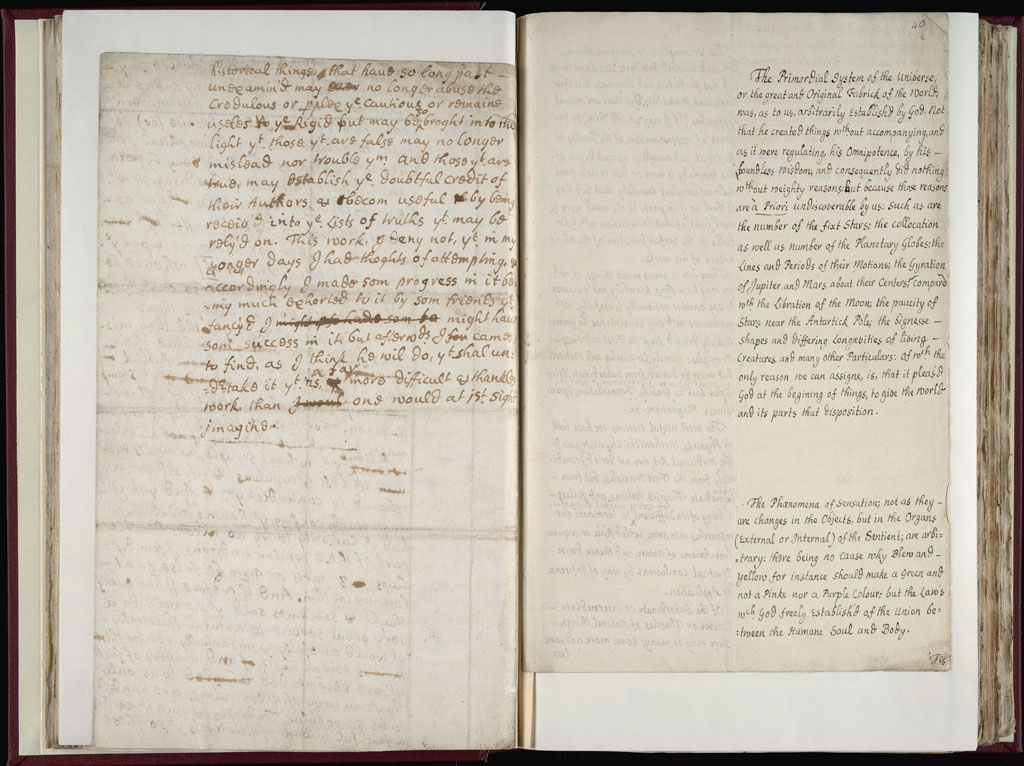 historical things, that have so long past
unexamin'd may ever no longer abuse the
Credulous or ye Cautious or remaine
useles to ye Rigid but may be broght into the
light yt those yt are false may no longer
mislead nor trouble ym and those yt are
true, may establish ye doubtful credit of
their Authors & becom useful by being
receiv'd into ye Lists of truths yt may be
rely'd on. This work, I deny not, yt in my
yonger days I had thoghts of attempting, &
accordingly I made som progress in it be-
ing much exhorted to it by som friends yt
fancy'd I might might have
som success in it. but afterwds I came
to find, as I think he wil do, yt shal un:
:detake it yt 'tis, a far more difficult & thankles
work, than I woul one would at 1st sight
jmagine.
40
The Primordial System of the Universe,
or the great and Original Fabrick of the World;
was, as to us, arbitrarily establish'd by God. Not
that he created things wthout accompanying, and
as it were regulating, his Omnipotence, by his
boundless wisdom; and consequently did nothing
wthout weighty reasons: but because those reasons
are à Priori undiscoverable by us: such as are
the number of the fixt Stars; the collocation
as well as number of the Planetary Globes; the
Lines and Periods of their Motions; the Gyration
of Jupiter and Mars about their Centers, compar'd
wth the Libration of the Moon; the paucity of
Stars near the Antartick Pole; the bignesse
shapes and differing Longævities of living
Creatures, and many other Particulars: of wch the
only reason we can assigne, is, that it pleas'd
God at the begining of things, to give the world
and its parts that disposition.
The Phænomena of Sensation; not as they
are changes in the Objects, but in the Organs
(External or Internal) of the Sentient; are arbi=
=trary: there being no cause why Blew and
yellow for instance should make a Green and
not a Pinke nor a Purple Colour: but the Law's
wch God freely establish'd of the Union be=
=tween the Humane Soul and Body.
'Tis